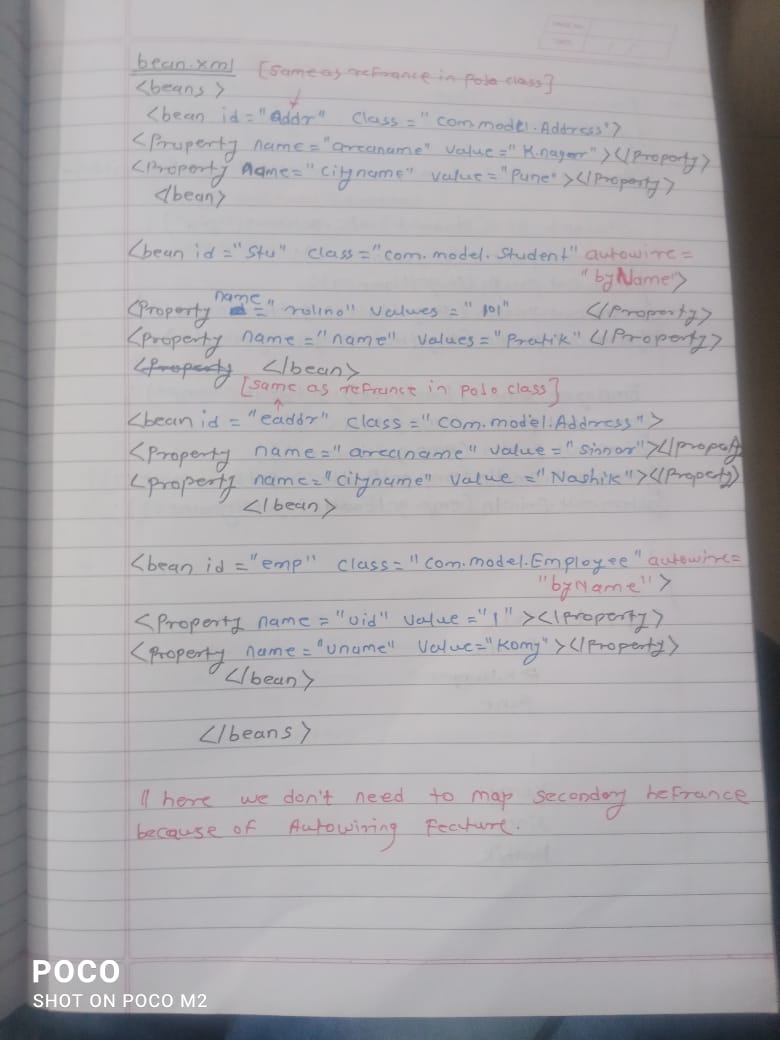 bean.xml [same as refrance in Polo class]
<beans>
<bean id="addr" class="com.model.Address">
<Property name="areaname" value="K.nagar"></Property>
<Property name="cityname" value="Pune"></Property>
</bean>
<bean id="Stu" class="com.model.Student" autowire=
"byName">
<Property name="rollno" values="101" </Property>
<Property name="name" values="Pratik" </Property>
</bean>
[same as refrance in Polo class]
<bean id="eaddr" class="com.model.Address">
<Property name="areaname" value="sinnar"></Propety
<Property name="cityname" value="Nashik"></Propety>
</bean>
<bean id="emp" class="com.model.Employee" autowire=
"byName">
<Property name="uid" value="1"></Property>
<Property name="uname" value="Komy"></Property>
</bean>
</beans>
// here we don't need to map secondary refrance
because of Autowiring Feature.
POCO
SHOT ON POCO M2